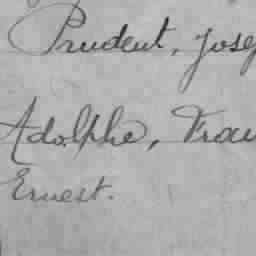 Prudent, Jose
Adolphe, Fran
Ernest.